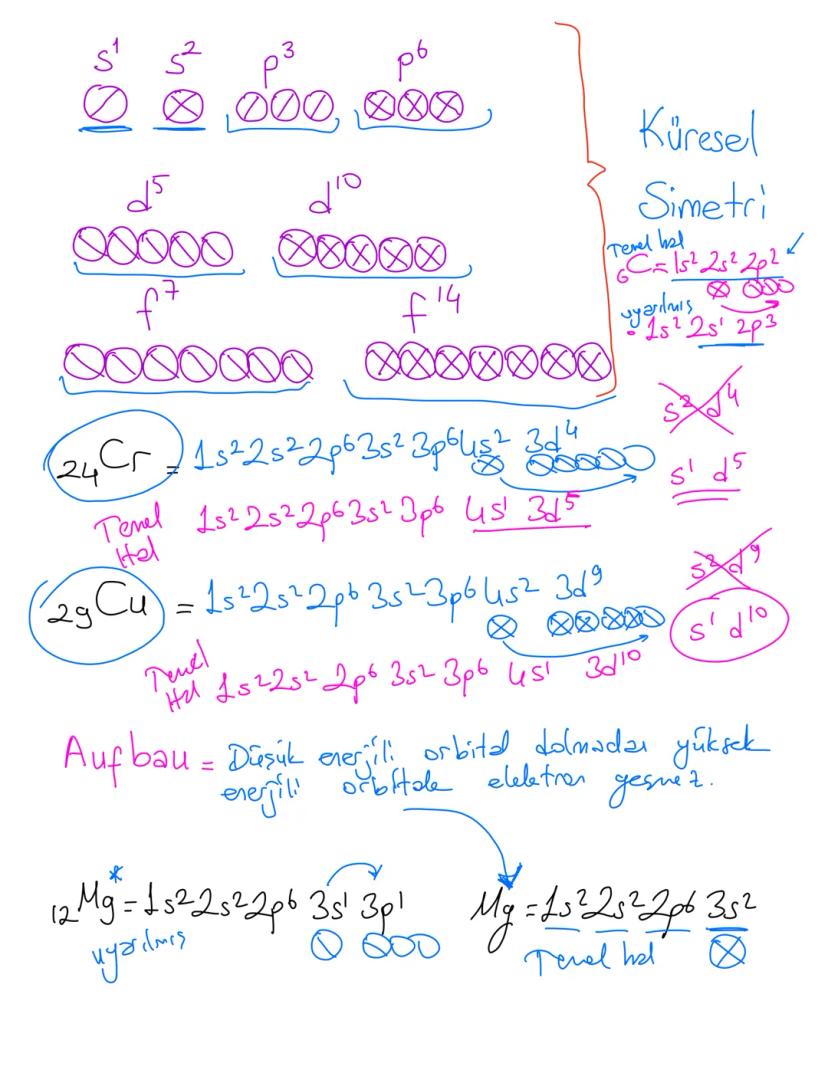 s¹ s² p³ p⁶
d⁵ d¹⁰
f⁷ f¹⁴
Küresel
Simetri
Temel hal
₆C = 1s² 2s² 2p²
uyarılmış
1s² 2s¹ 2p³
s² d⁴
s¹ d⁵
₂₄Cr = 1s² 2s² 2p⁶ 3s² 3p⁶ 4s² 3d⁴
Temel
Hal
1s² 2s² 2p⁶ 3s² 3p⁶ 4s¹ 3d⁵
s² d⁹
s¹ d¹⁰
₂₉Cu = 1s² 2s² 2p⁶ 3s² 3p⁶ 4s² 3d⁹
Temel
Hal
1s² 2s² 2p⁶ 3s² 3p⁶ 4s¹ 3d¹⁰
Aufbau = Düşük enerjili orbital dolmadan yüksek
enerjili orbitale elektron geçmez.
₁₂Mg* = 1s² 2s² 2p⁶ 3s¹ 3p¹
uyarılmış
Mg = 1s² 2s² 2p⁶ 3s²
Temel hal